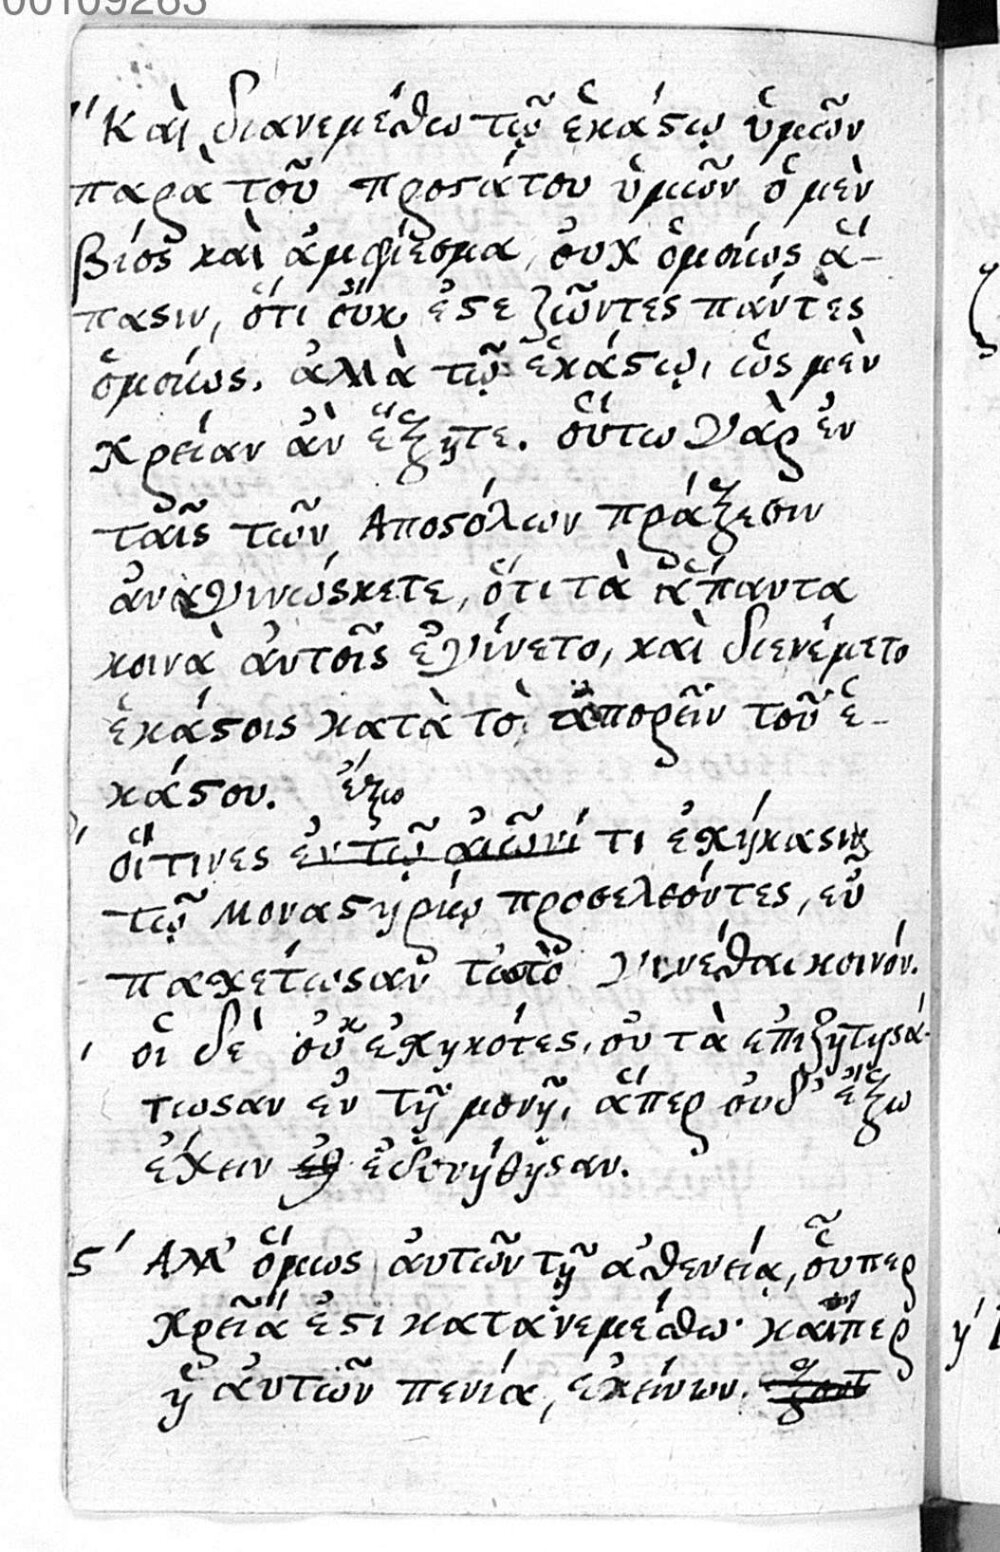 00109283
Καὶ διανεμέσθω τῷ ἑκάστῳ ὑμῶν
παρὰ τοῦ προστάτου ὑμῶν ὁ μὲν
βίος καὶ ἀμφίεσμα, οὐχ ὁμοίως ἅ-
πασιν, ὅτι οὐκ ἐστε ζῶντες πάντες
ὁμοίως. ἀλλὰ τῷ ἑκάστῳ, ὡς μὲν
χρείαν ἂν ἕξητε. οὕτω γὰρ ἐν
ταῖς τῶν Αποστόλων πράξεσιν
ἀναγινώσκετε, ὅτι τὰ ἅπαντα
κοινὰ ἀυτοῖς ἐγίνετο, καὶ διενέμετο
ἑκάστοις κατὰ τὸ ἀπορεῖν τοῦ ἑ-
κάστου. ἔξω
οἵτινες ἐν τῷ αἰῶνί τι ἐχήκασιν
τῷ Μοναστηρίῳ προσελθόντες, εὖ
παχέτωσαν τωτὸ γινέσθαι κοινόν.
οἱ δὲ οὐκ ἐχηκότες, οὐ τὰ ἐπιζητησά-
τωσαν ἐν τῇ μονῇ, ἅπερ οὐδ' ἔξω
ἔχειν ἐδυνήθησαν.
ς΄ Αλλ' ὅμως ἀυτῶν τῇ ἀσθενείᾳ, οὗπερ
χρεῖά ἐστι κατανεμέσθω· καίπερ
ἡ ἀυτῶν πενία, ἐκείνων.
η΄